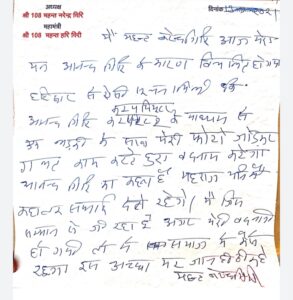 अध्यक्ष
श्री 108 महन्त नरेन्द्र गिरि
महामंत्री
श्री 108 महन्त हरि गिरी
दिनांक 13
मैं महन्त नरेन्द्र गिरि आज मेरा
मन आनन्द गिरि के कारण
हरिद्वार से कि
आनन्द गिरि कम्प्यूटर के माध्यम से
एक लड़की के साथ मेरी फोटो जोड़कर
गलत काम करते हुए बदनाम करेगा
आनन्द गिरि का कहना है महाराज यानि मैं
कहां तक सफाई देते रहेंगे। मैं जिस
सम्मान से जी रहा हूँ अगर मेरी बदनामी
हो गयी तो मैं समाज में कैसे
रहूंगा इस अच्छा मर जाना ठीक है
महन्त नरेन्द्र गिरि